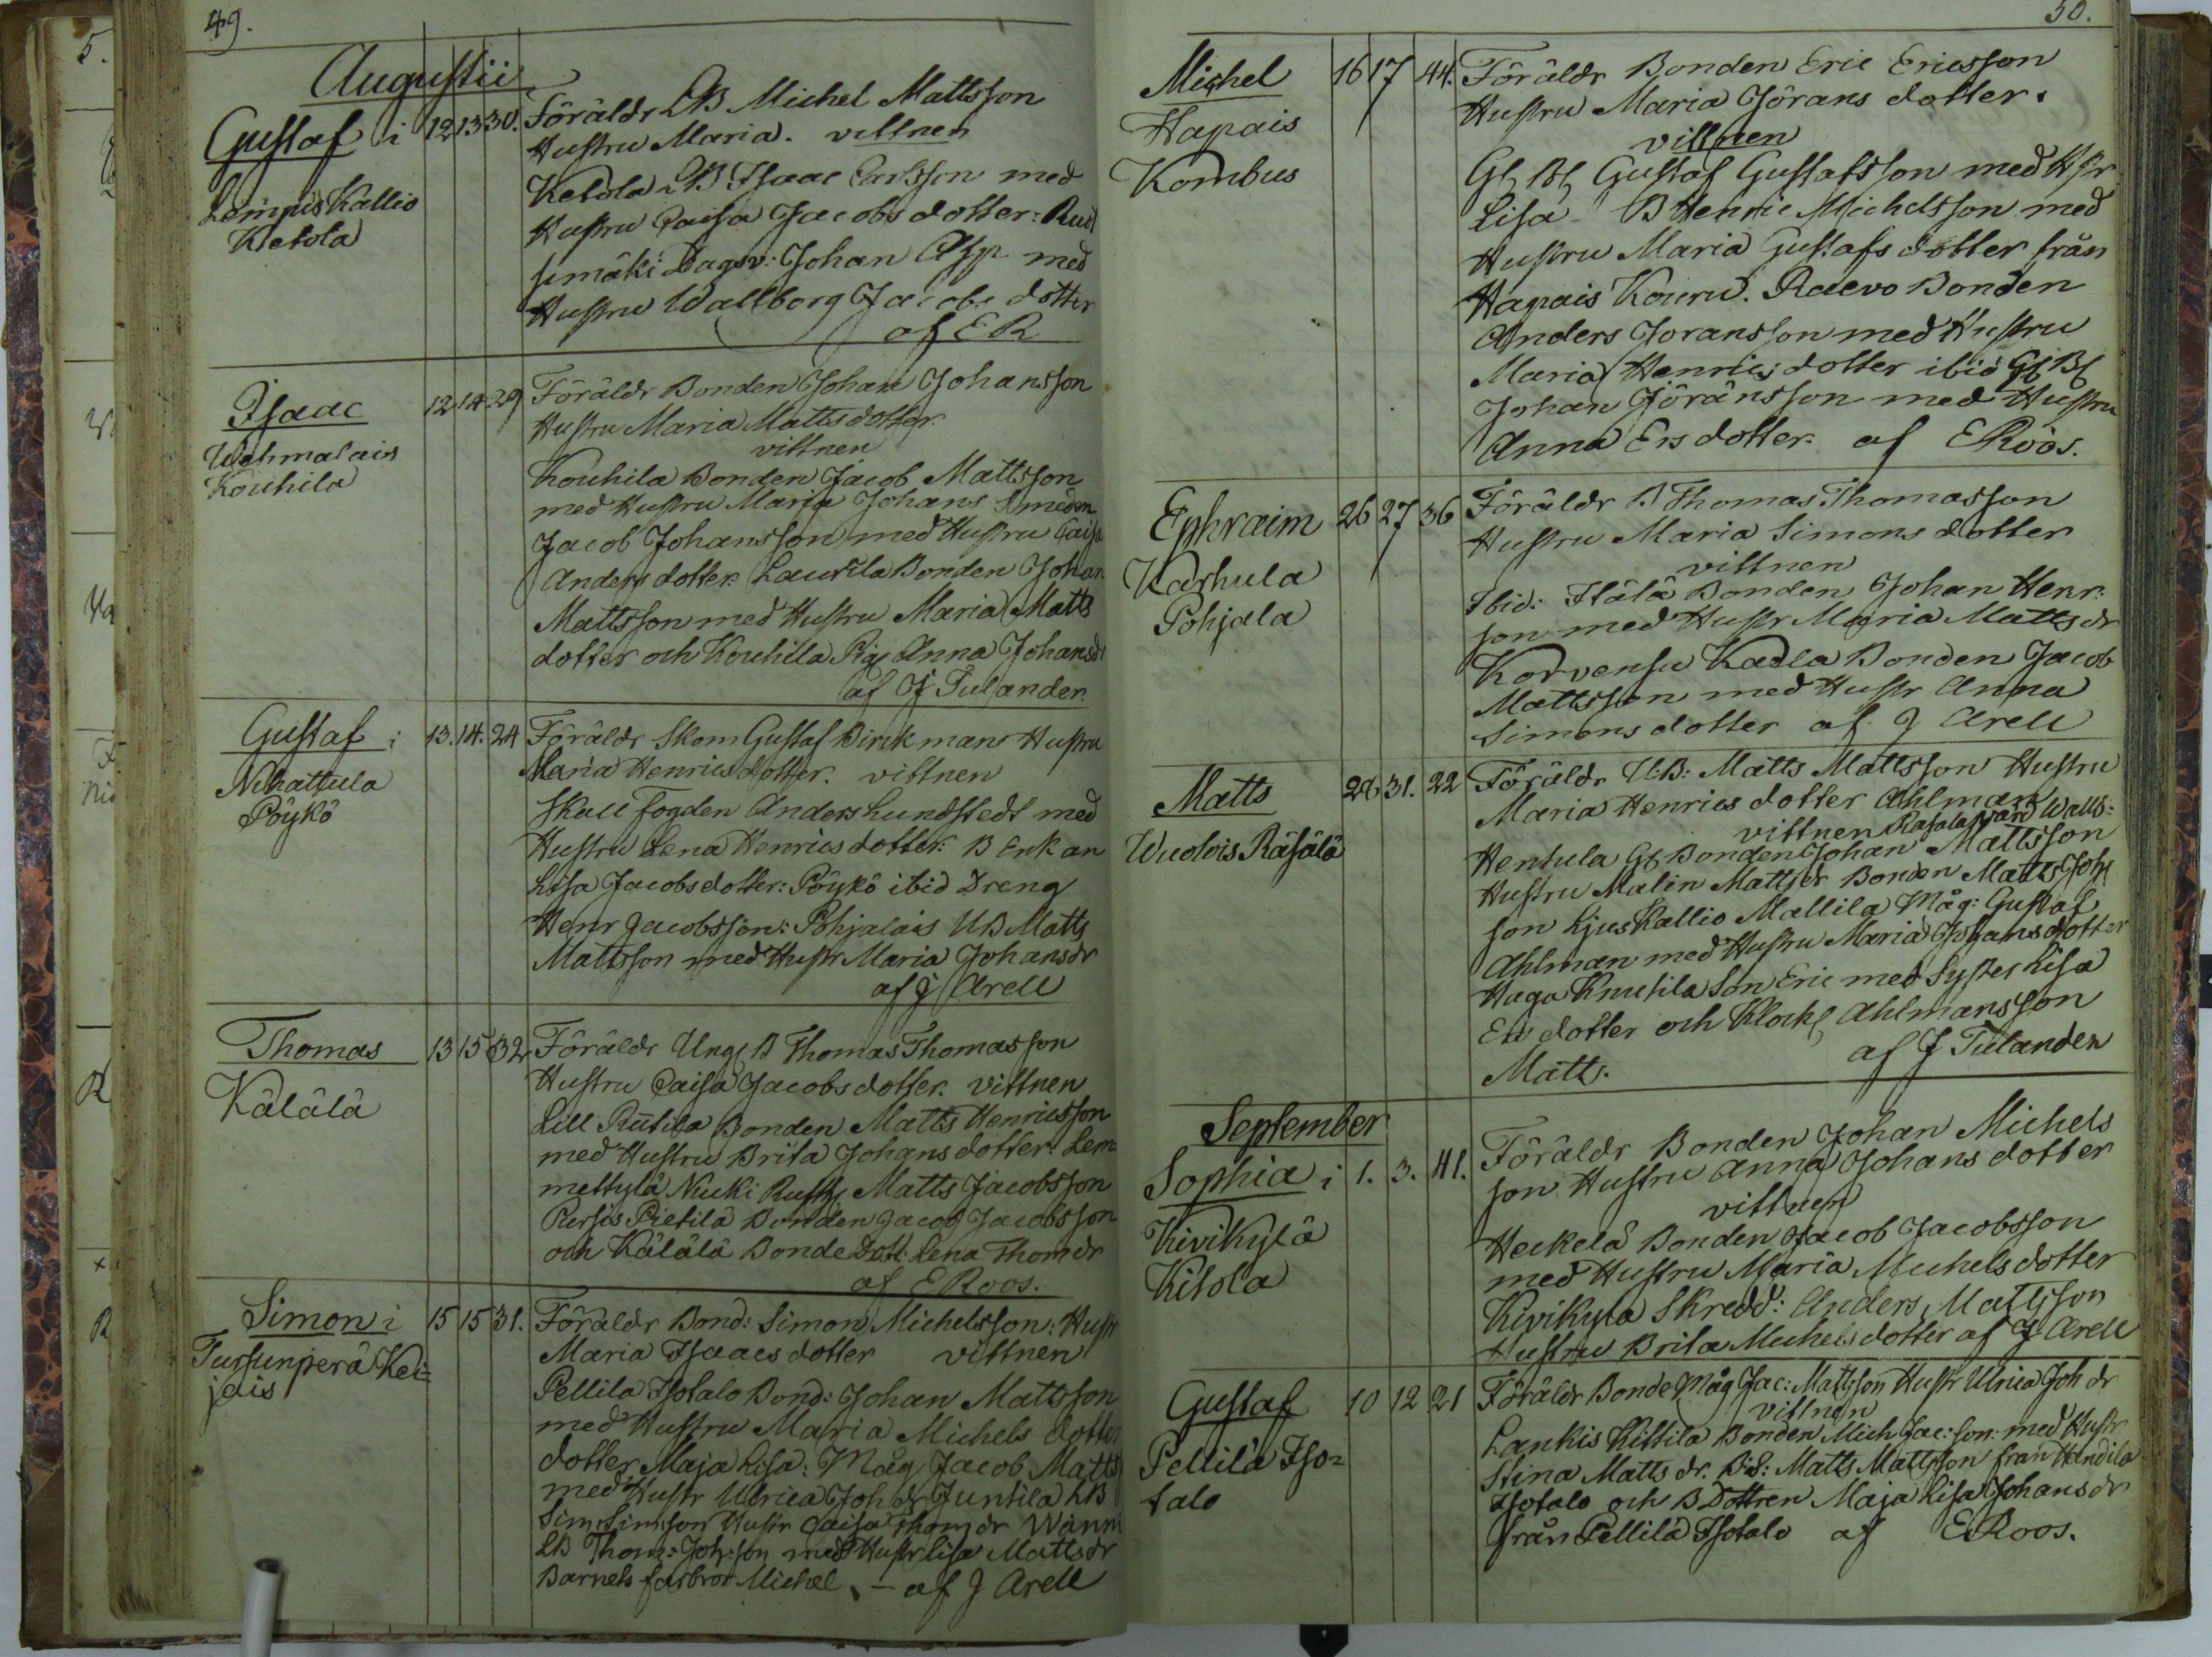 49.
Augustii
Gustaf i 12 13 30. Föräldr LB Michel Mattsson
Hustru Maria. vittnen
Lempis Kallio
Ketola
Ketola LB Isaac Carlsson med
Hustru Caisa Jacobs dotter: Rud
sumäki Dagsv: Johan Asp med
Hustru Wallborg Jacobs dotter
af E R
Isaac 12 14 29 Föräldr Bonden Johan Johansson
Hustru Maria Matts dotter.
Wehmalais
Kouhila
vittnen
Kouhila Bonden Jacob Mattsson
med Hustru Maria Johans Smeden
Jacob Johansson med Hustru Caisa
Anders dotter. Laurila Bonden Johan
Mattsson med Hustru Maria Matts
dotter och Kouhilla Pig Anna Johansdr
af J Tulander.
Gustaf i 13. 14. 24 Föräldr Skom Gustaf Birckmans Hustru
Maria Henrics dotter. vittnen
Nihattula
Pöykö
Skall fogden Anders Lundstedt med
Hustru Lena Henrics dotter: B Enkan
Lisa Jacobs dotter: Pöykö ibid Dreng
Henr Jacobsson: Pohjalais UB Matts
Mattsson med Hustr Maria Johansdr
af J Arell
Thomas 13 15 32 Föräldr Ung B Thomas Thomasson
Kälälä
Hustru Caisa Jacobs dotter. vittnen
Lill Rutila Bonden Matts Henricsson
med Hustru Brita Johans dotter. Lem-
mettylä Nuuki Rusth Matts Jacobsson
Pursis Pietilä Bonden Jacob Jacobsson
och Kälälä Bonde Dott: Lena Thomdr
af E Roos.
Simon i 15 15 31. Föräldr Bond: Simon Michelsson: Hustr
Tursunperä Kei=
jais
Maria Isaacs dotter vittnen
Pellila Isotalo Bond: Johan Mattsson
med Hustru Maria Michels dotter
dotter Maja Lisa: Måg Jacob Matts
med Hustr Ulrica Joh dr Juntila LB
Sim: Simsson Hustr Caisa Thom dr Wänni
LB Thom: Joh: son med Hustr Lisa Matts dr
Barnets farbror Michel. – af J Arell
50.
Michel 16 17 44. Föräldr Bonden Eric Ericsson
Hapais
Kombus
Hustru Maria Jörans dotter.
vittnen
Gl Bl Gustaf Gustafsson med Hstr
Lisa - B Henric Michelsson med
Hustru Maria Gustafs dotter från
Hapais Kouru. Raevo Bonden
Anders Joransson med Hustru
Maria Henrics dotter ibid Gl Bl
Johan Jöransson med Hustru
Anna Ers dotter. af E Roos.
Ephraim 26 27 36 Föräldr B Thomas Thomasson
Karhula
Pohjala
Hustru Maria Simons dotter
vittnen
Ibid: Itälä Bonden Johan Henr:
son med Hustr Maria Matts dr
Korvensu Kadla Bonden Jacob
Mattsson med Hustr Anna
Simons dotter af J Arell
Matts 28 31. 22 Föräldr U:B: Matts Mattsson Hustru
Wuolois Räfälä
Maria Henrics dotter Ahlman
vittnen Rafala värd Walls:
Hentula Gl Bonden Johan Mattsson
Hustru Malin Matts dr Bonden Matts Joh
son Ljuskallio Mallila Måg: Gustaf
Ahlman med Hustru Maria Johans dotter
Haga Knutila Son Eric med Syster Lisa
Ers dotter och Klock Ahlmansson
Matts. af J Tulander
September
Sophia i 1. 3. 41. Föräldr Bonden Johan Michels
Kivikylä
Kitola
son Hustru Anna Johans dotter
vittnen
Heckelä Bonden Jacob Jacobsson
med Hustru Maria Michels dotter
Kivikyla Skredd: Anders Mattsson
Hustru Brita Michels dotter af J Arell
Gustaf 10 12 21 Föräldr Bonde Måg Jac: Mattsson Hustr Ulrica Joh dr
Pellilä Iso=
talo
vittnen
Lankis Kittila Bonden Mich Jac: son: med Hustr
Stina Matts dr. B:S: Matts Mattsson från Handila
Isotalo och B Dottren Maja Lisa Johans dr
från Pellilä Isotalo af E Roos.